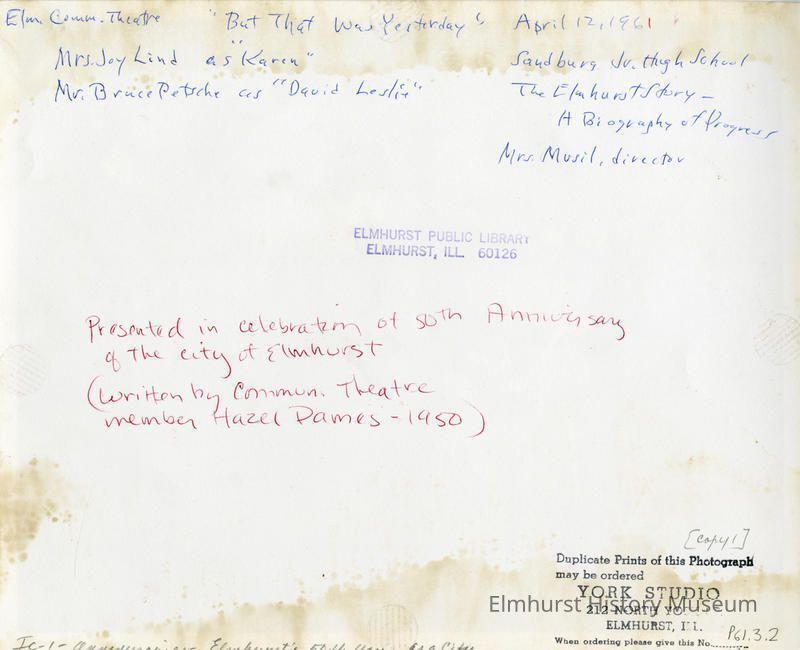 Elm. Comm. Theatre "But That Was Yesterday" April 12, 1961
Mrs. Joy Lind as "Karen" Sandburg Jr. High School
Mr. Bruce Petsche as "David Leslie" The Elmhurst Story -
A Biography of Progress
Mrs. Musil, director
ELMHURST PUBLIC LIBRARY
ELMHURST, ILL. 60126
Presented in celebration of 50th Anniversary
of the city of Elmhurst
(written by Commun. Theatre
member Hazel Dames - 1950)
[copy 1]
Duplicate Prints of this Photograph
may be ordered
YORK STUDIO
212 NORTH YO
Elmhurst History Museum
ELMHURST, ILL.
When ordering please give this No. P61.3.2
Elmhurst's as a City